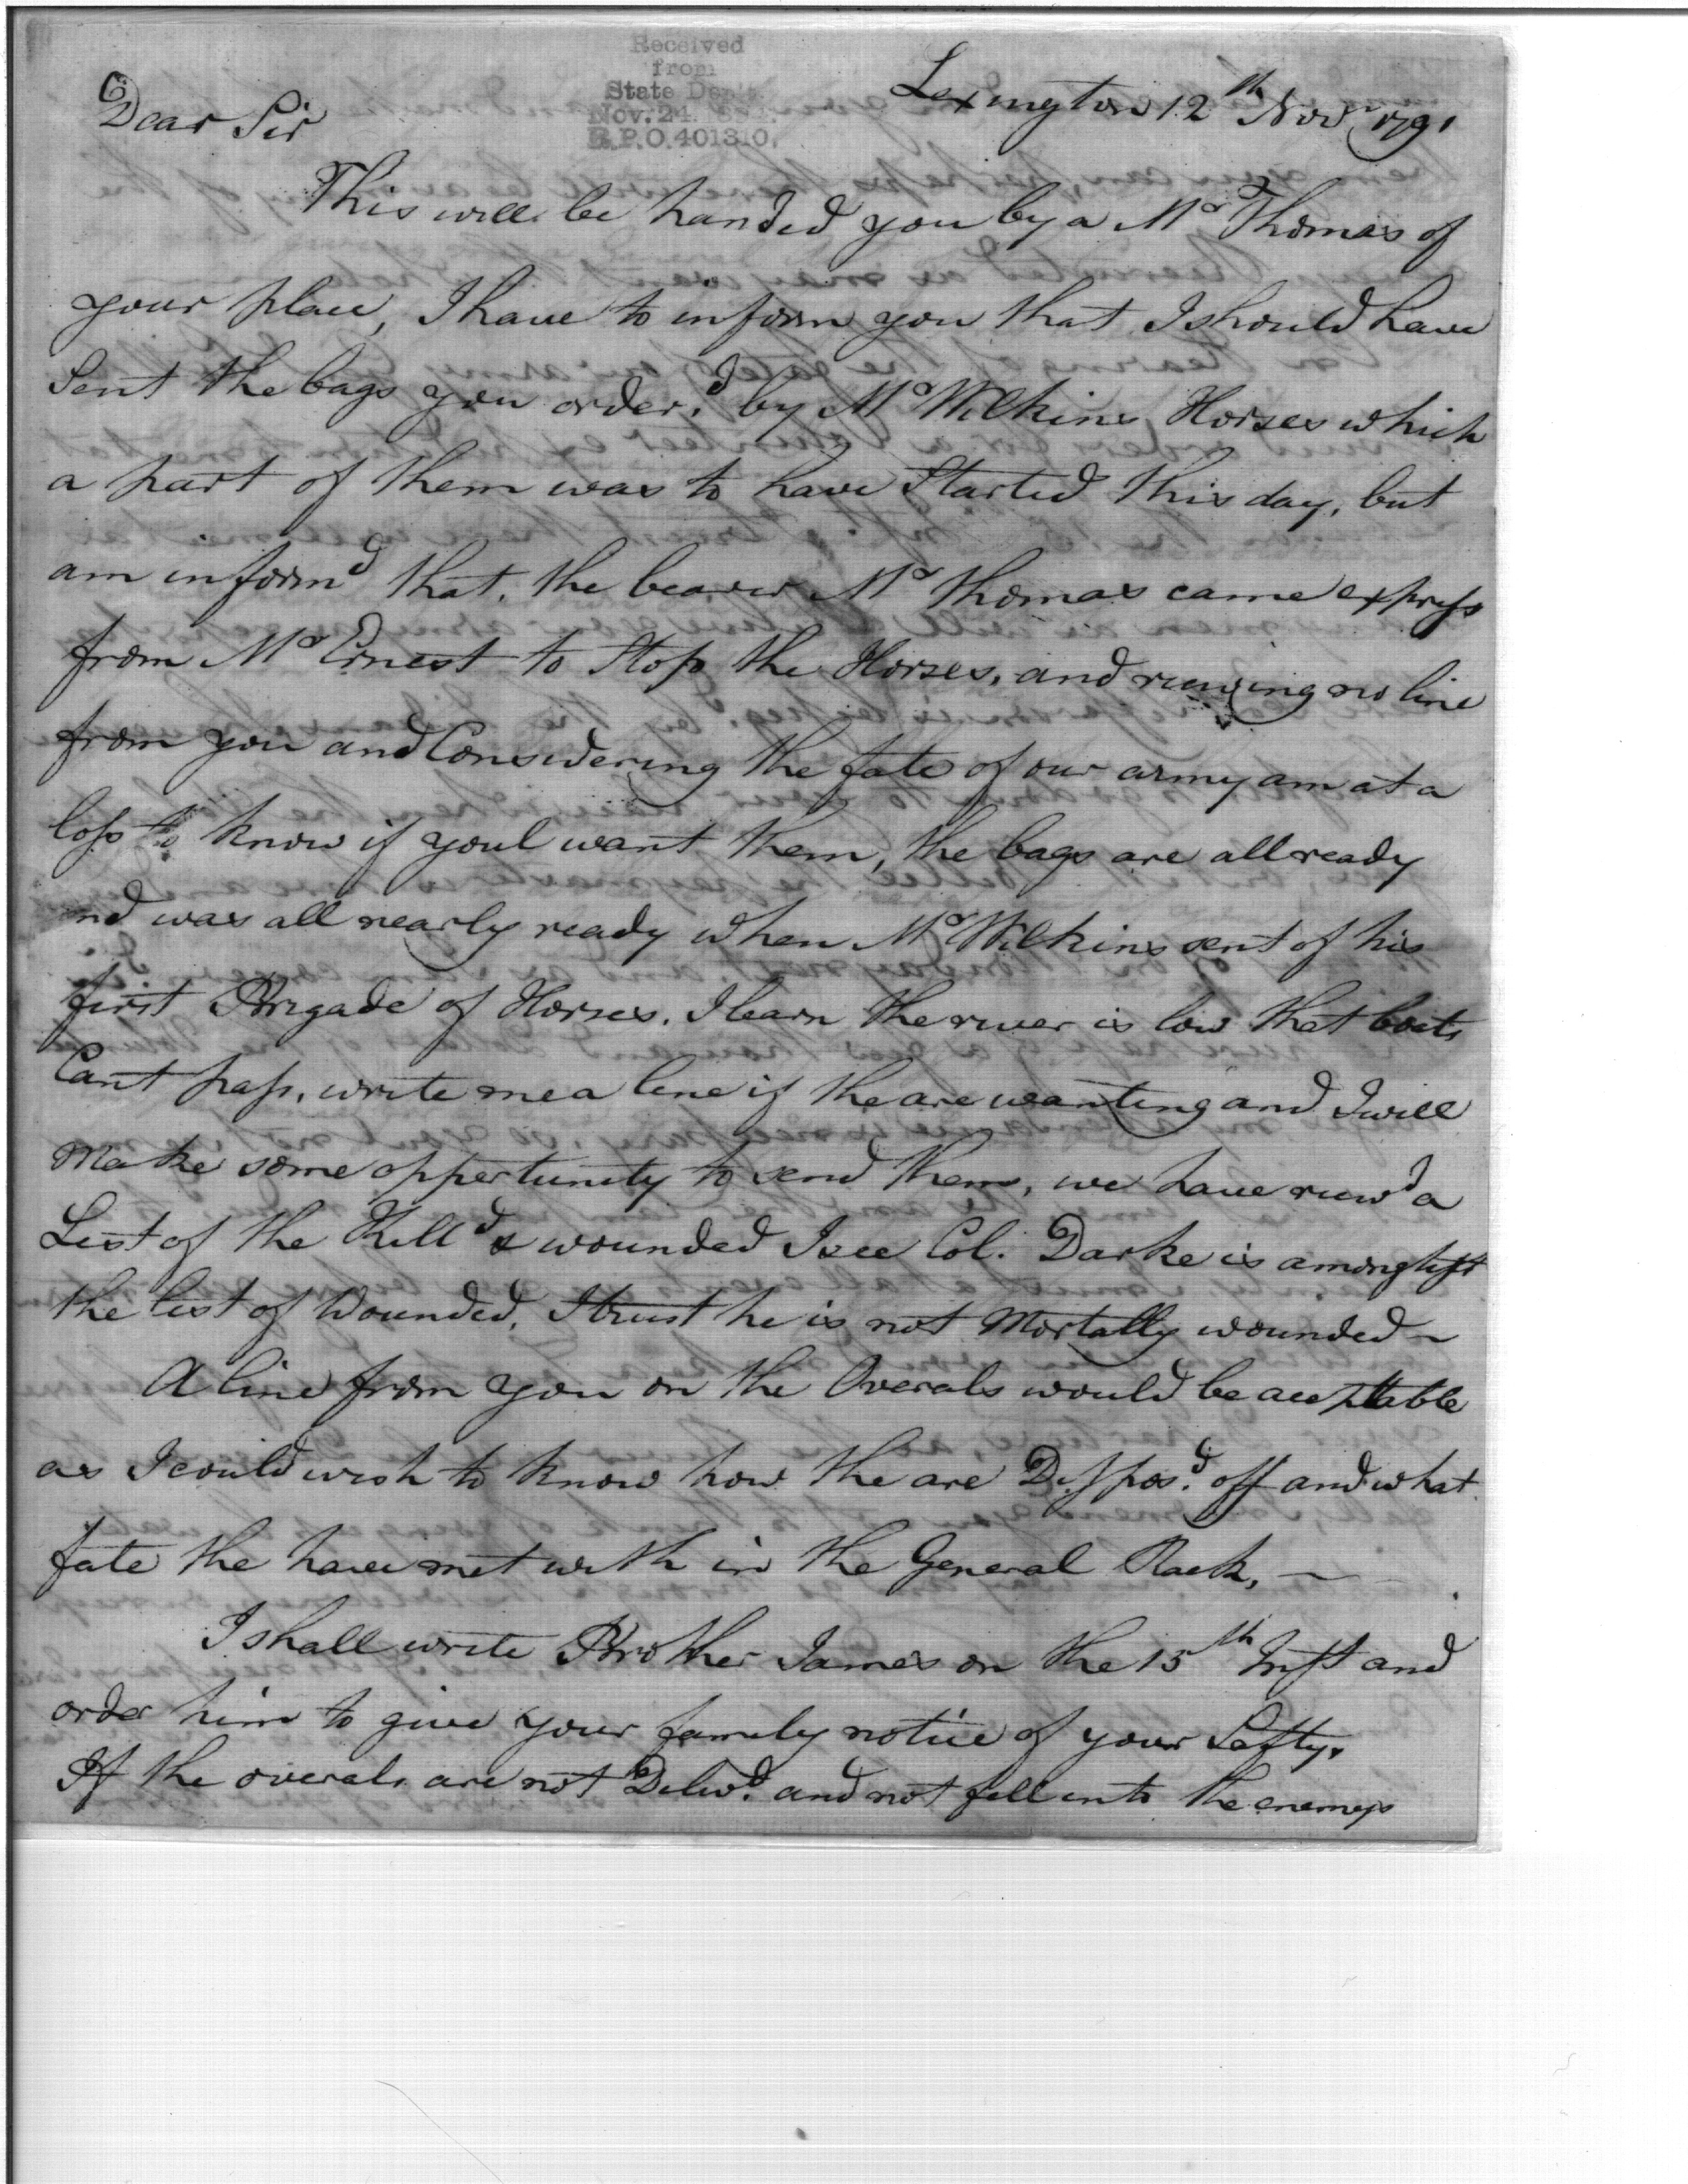 Received
from
State Dep't.
Nov. 24. 1894.
R.P.O. 401310.
Lexington 12th Novr 1791
Dear Sir
This will be handed you by a Mr Thomas of
your place, I have to inform you that I should have
Sent the bags you order,d by Mr Wilkins Horses which
a part of them was to have Started this day, but
am informd that, the bearer Mr Thomas came express
from Mr Ernest to Stop the Horses, and receving no line
from you and Considering the fate of our army am at a
loss to know if youl want them, the bags are all ready
nd was all nearly ready when Mr Wilkins sent of his
first Brigade of Horses. I learn the river is low that boats
Cant pass, write me a line if the are wanting and I will
Make some oppertunity to send them, we have recevd a
List of the Killd & wounded I see Col. Darke is amonghst
the list of Wounded, I trust he is not Mortally wounded ~
A line from you on the Overals would be acceptable
as I could wish to know how the are Disspos.d off and what
fate the have met with in the General Rack, ~
I shall write Brother James on the 15th Inst and
order him to give your family notice of your Safty.
If the overals are not Deliv.d and not fell into the enemys